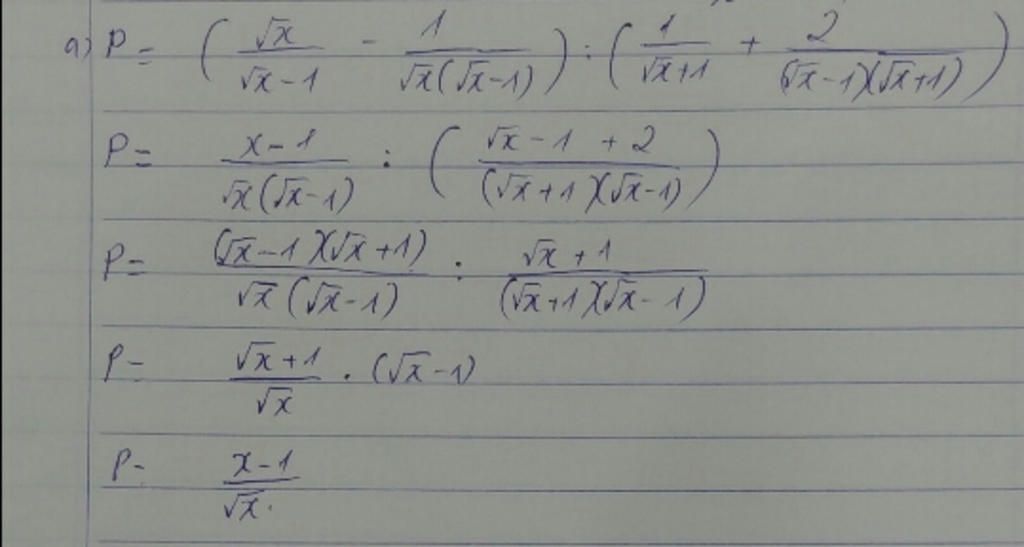 a) P = ( √x / √x - 1 - 1 / √x(√x-1) ) : ( 1 / √x+1 + 2 / (√x-1)(√x+1) )
P = x-1 / √x(√x-1) : ( √x - 1 + 2 / (√x+1)(√x-1) )
P = (√x-1)(√x+1) / √x(√x-1) : √x+1 / (√x+1)(√x-1)
P = √x+1 / √x . (√x-1)
P = x-1 / √x.